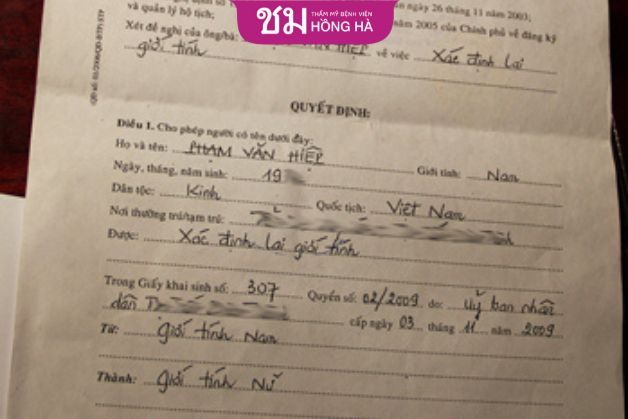 THẨM MỸ BỆNH VIỆN
HỒNG HÀ
ngày 26 tháng 11 năm 2003;
và quản lý hộ tịch; năm 2005 của Chính phủ về đăng ký
Xét đề nghị của ông/bà: HIỆP về việc Xác định lại
giới tính
QUYẾT ĐỊNH:
Điều 1. Cho phép người có tên dưới đây:
Họ và tên: PHẠM VĂN HIỆP Giới tính: Nam
Ngày, tháng, năm sinh: 19
Dân tộc: Kinh Quốc tịch: Việt Nam
Nơi thường trú/tạm trú:
Được: Xác định lại giới tính
Trong Giấy khai sinh số: 307 Quyển số: 02/2009 do: Uỷ ban nhân
dân cấp ngày 03 tháng 11 năm 2009
Từ: giới tính Nam
Thành: giới tính Nữ